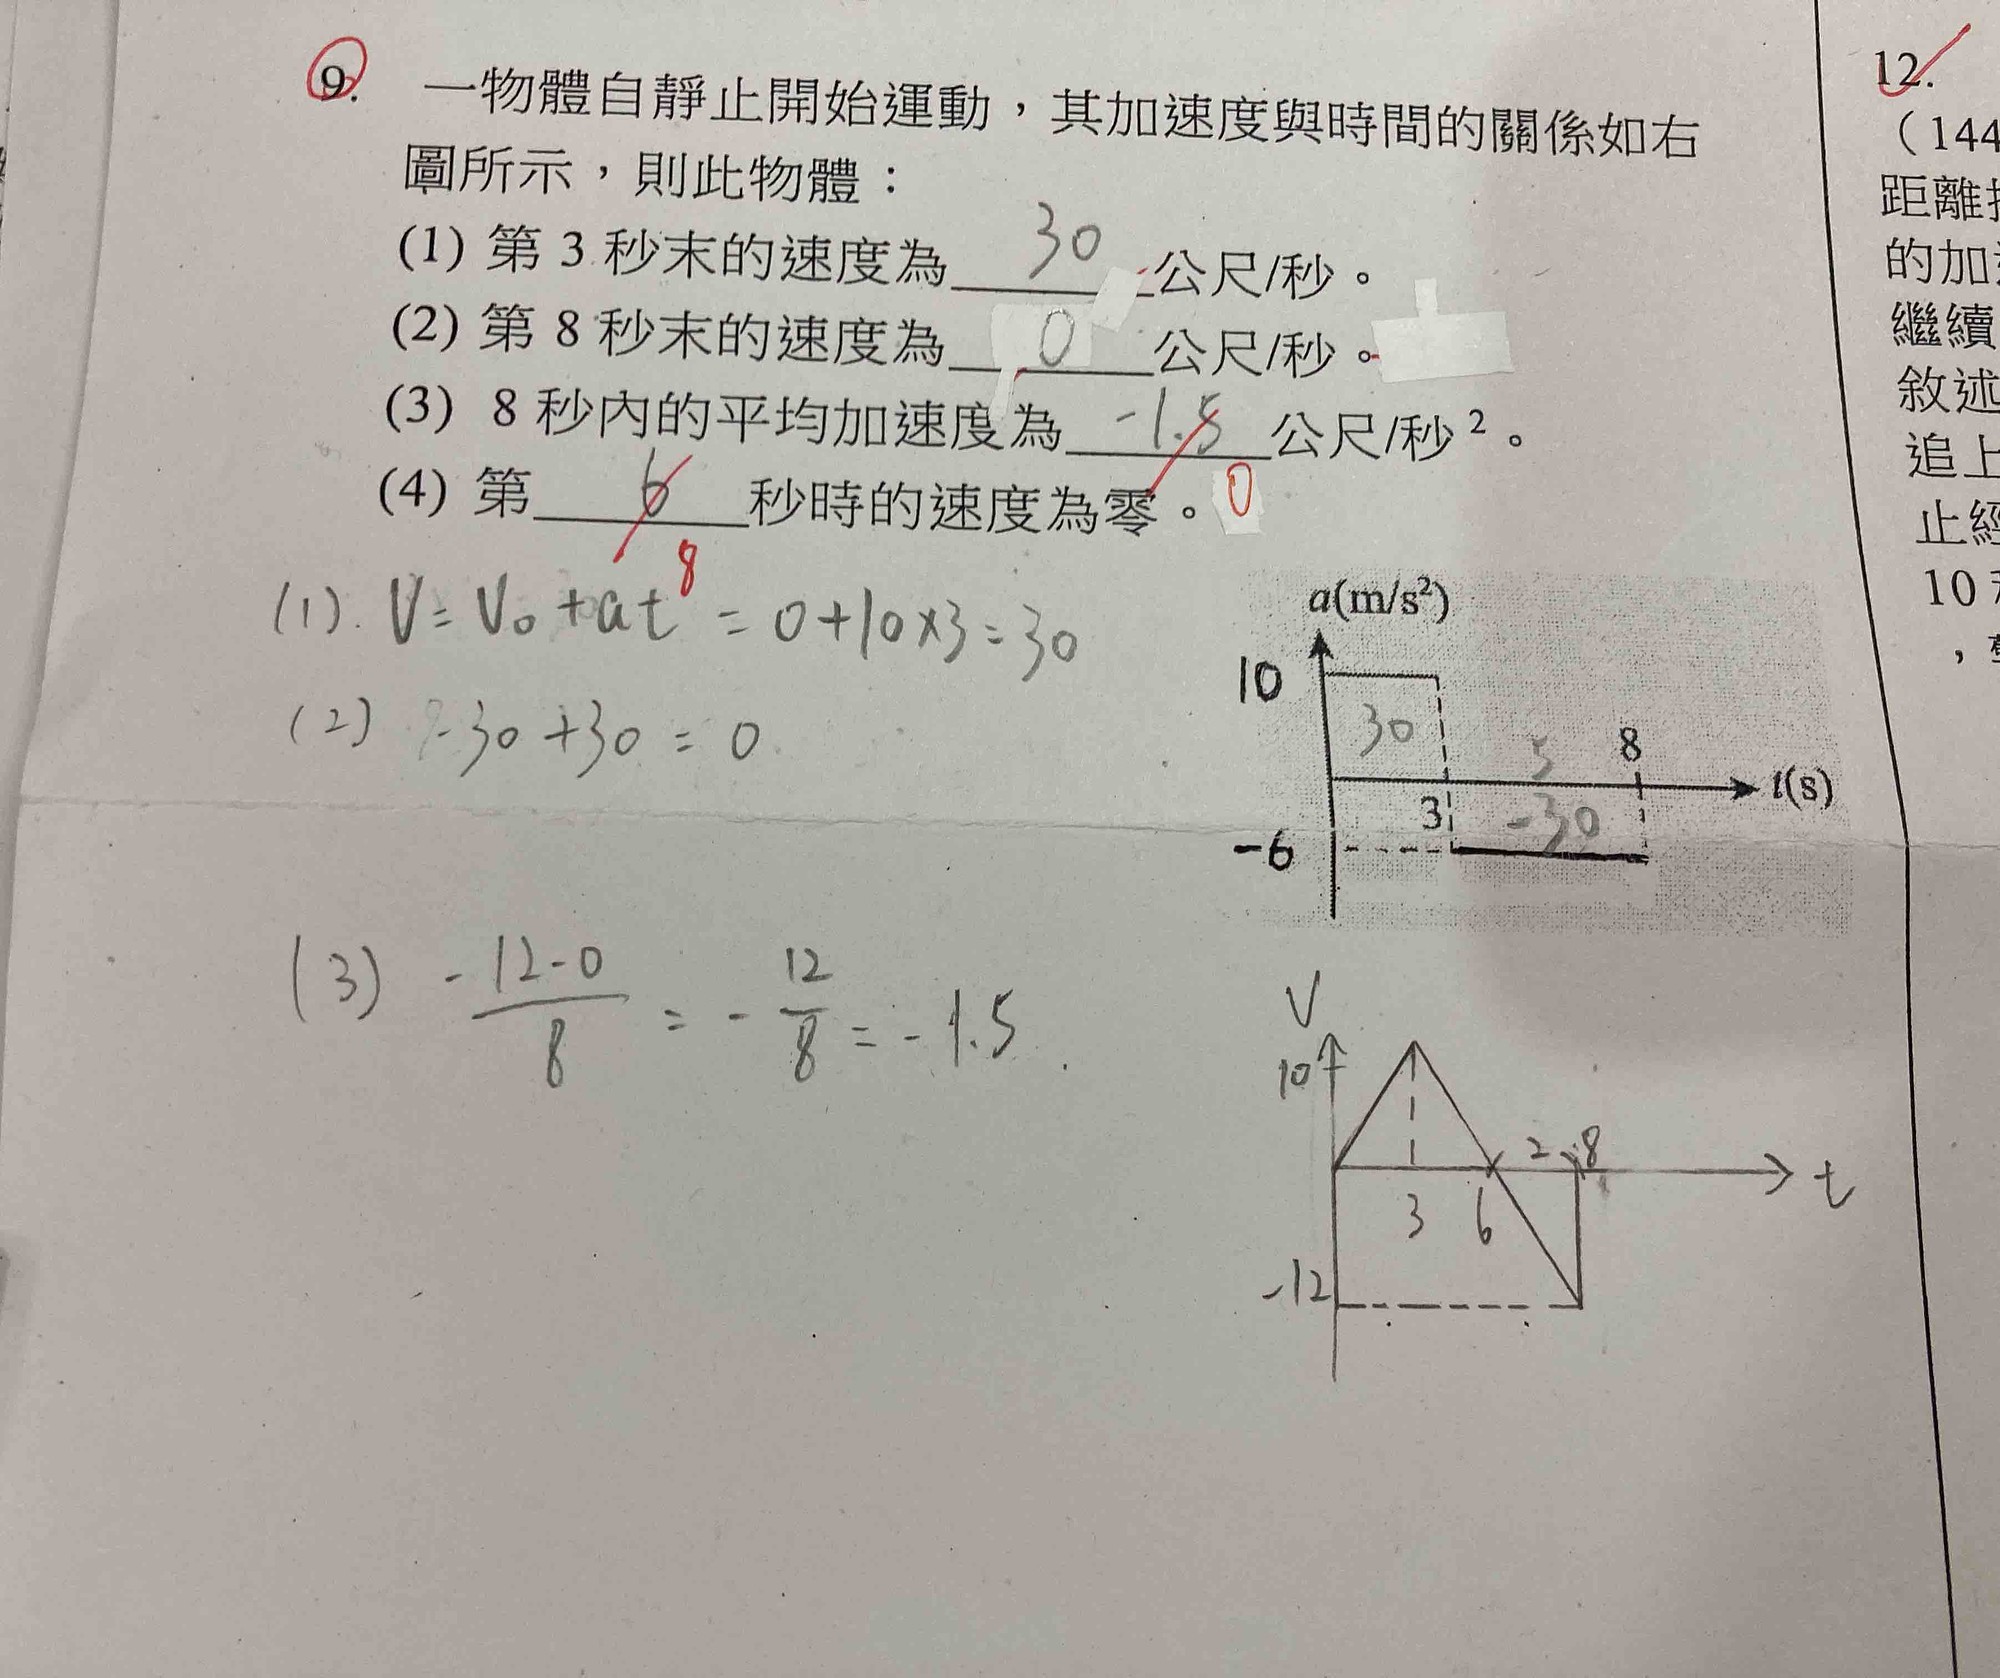 9. 一物體自靜止開始運動，其加速度與時間的關係如右
圖所示，則此物體：
(1) 第 3 秒末的速度為 30 公尺/秒。
(2) 第 8 秒末的速度為 0 公尺/秒。
(3) 8 秒內的平均加速度為 -1.5 公尺/秒²。
(4) 第 6 秒時的速度為零。 0
8
(1). V = V₀ + at = 0+10×3=30
(2) -30+30=0
a(m/s²)
10
30
5
8
t(s)
3
-30
-6
(3) -12-0/8 = -12/8 = -1.5
V
10
2
8
t
3
6
-12
12.
（144
距離
的加
繼續
敘述
追上
止經
10
，